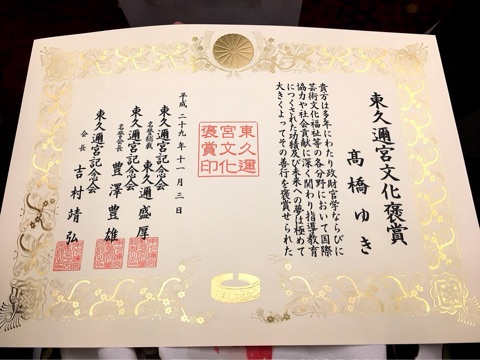 東久邇宮文化褒賞
髙橋ゆき
貴方は多年にわたり政財官学ならびに
芸術文化福祉等の各分野において国際
協力や社会貢献に深く関わり指導教育
につくされた功積及び未来への夢は極めて
大きくよってその善行を褒賞せられた
東久邇
宮文化
褒賞印
平成二十九年十一月三日
東久邇宮記念会
名誉総裁 東久邇盛厚
東久邇宮記念会
名誉会長 豊澤豊雄
東久邇宮記念会
会長 吉村靖弘